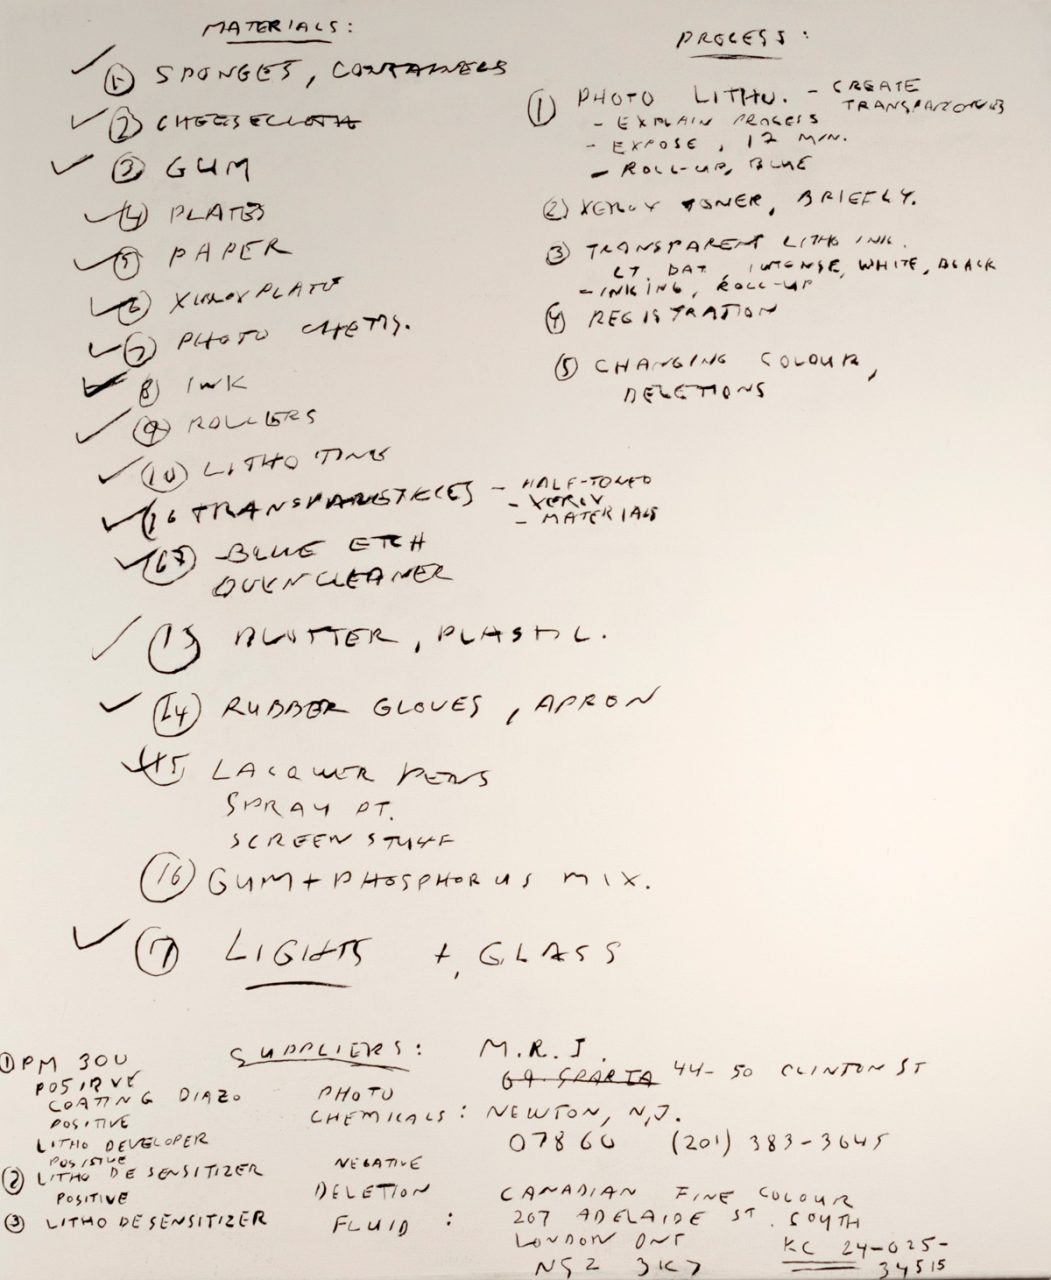 MATERIALS:
✓ ① SPONGES, CONTAINERS
✓ ② CHEESECLOTH
✓ ③ GUM
✓ ④ PLATES
✓ ⑤ PAPER
✓ ⑥ XEROX PLATE
✓ ⑦ PHOTO CHEMS.
✓ ⑧ INK
✓ ⑨ ROLLERS
✓ ⑩ LITHOTINE
✓ TRANSPARENCIES - HALF-TONED
- XEROX
- MATERIALS
✓ BLUE ETCH
OVEN CLEANER
✓ ⑬ BLOTTER, PLASTIC.
✓ ⑭ RUBBER GLOVES, APRON
✓ 15 LACQUER PENS
SPRAY PT.
SCREEN STUFF
⑯ GUM + PHOSPHORUS MIX.
✓ ⑰ LIGHTS + GLASS
PROCESS:
① PHOTO LITHO. - CREATE
TRANSPARENCIES
- EXPLAIN PROCESS
- EXPOSE, 12 MIN.
- ROLL-UP, BLUE
② XEROX TONER, BRIEFLY.
③ TRANSPARENT LITHO INK.
INTENSE, WHITE, BLACK
- INKING, ROLL-UP
④ REGISTRATION
⑤ CHANGING COLOUR,
DELETIONS
SUPPLIERS:
① PM 30U
POSITIVE
COATING DIAZO
POSITIVE
LITHO DEVELOPER
POSITIVE
② LITHO DESENSITIZER
POSITIVE
③ LITHO DESENSITIZER
PHOTO
CHEMICALS:
M.R.J.
69 SPARTA 44-50 CLINTON ST
NEWTON, N.J.
07860 (201) 383-3645
NEGATIVE
DELETION
FLUID:
CANADIAN FINE COLOUR
207 ADELAIDE ST. SOUTH
LONDON ONT
N5Z 3K7
KC 24-025-
34515